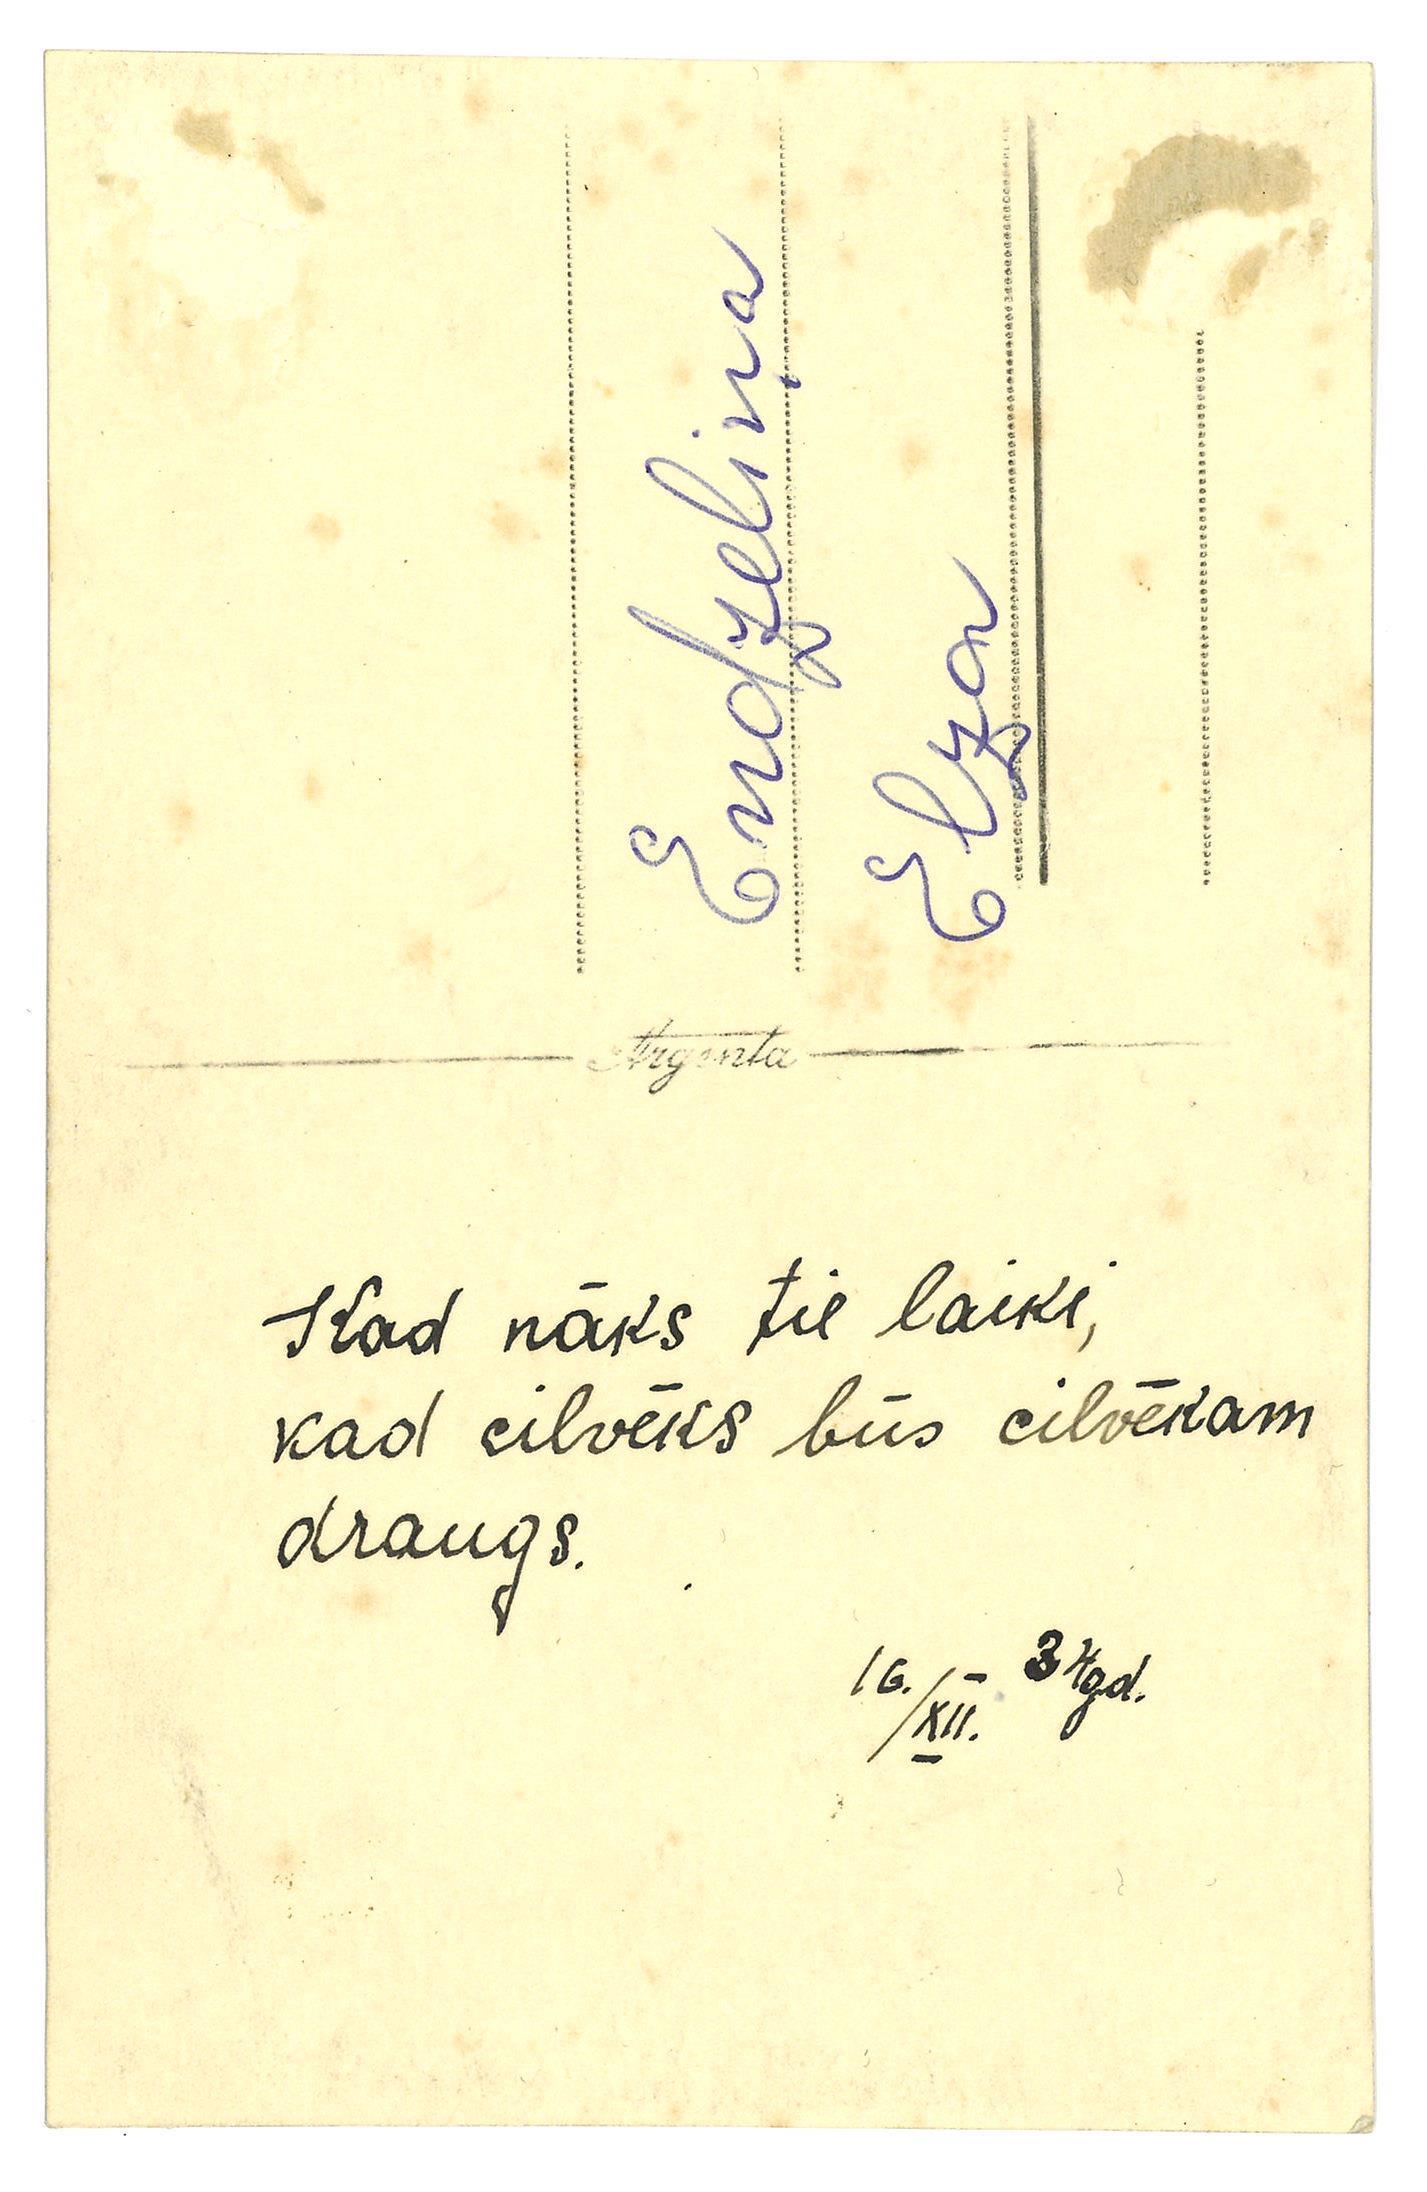 Endzeliņa
Elza
Argenta
Kad nāks tie laiki,
kad cilvēks būs cilvēkam
draugs.
16./XII. 34gd.